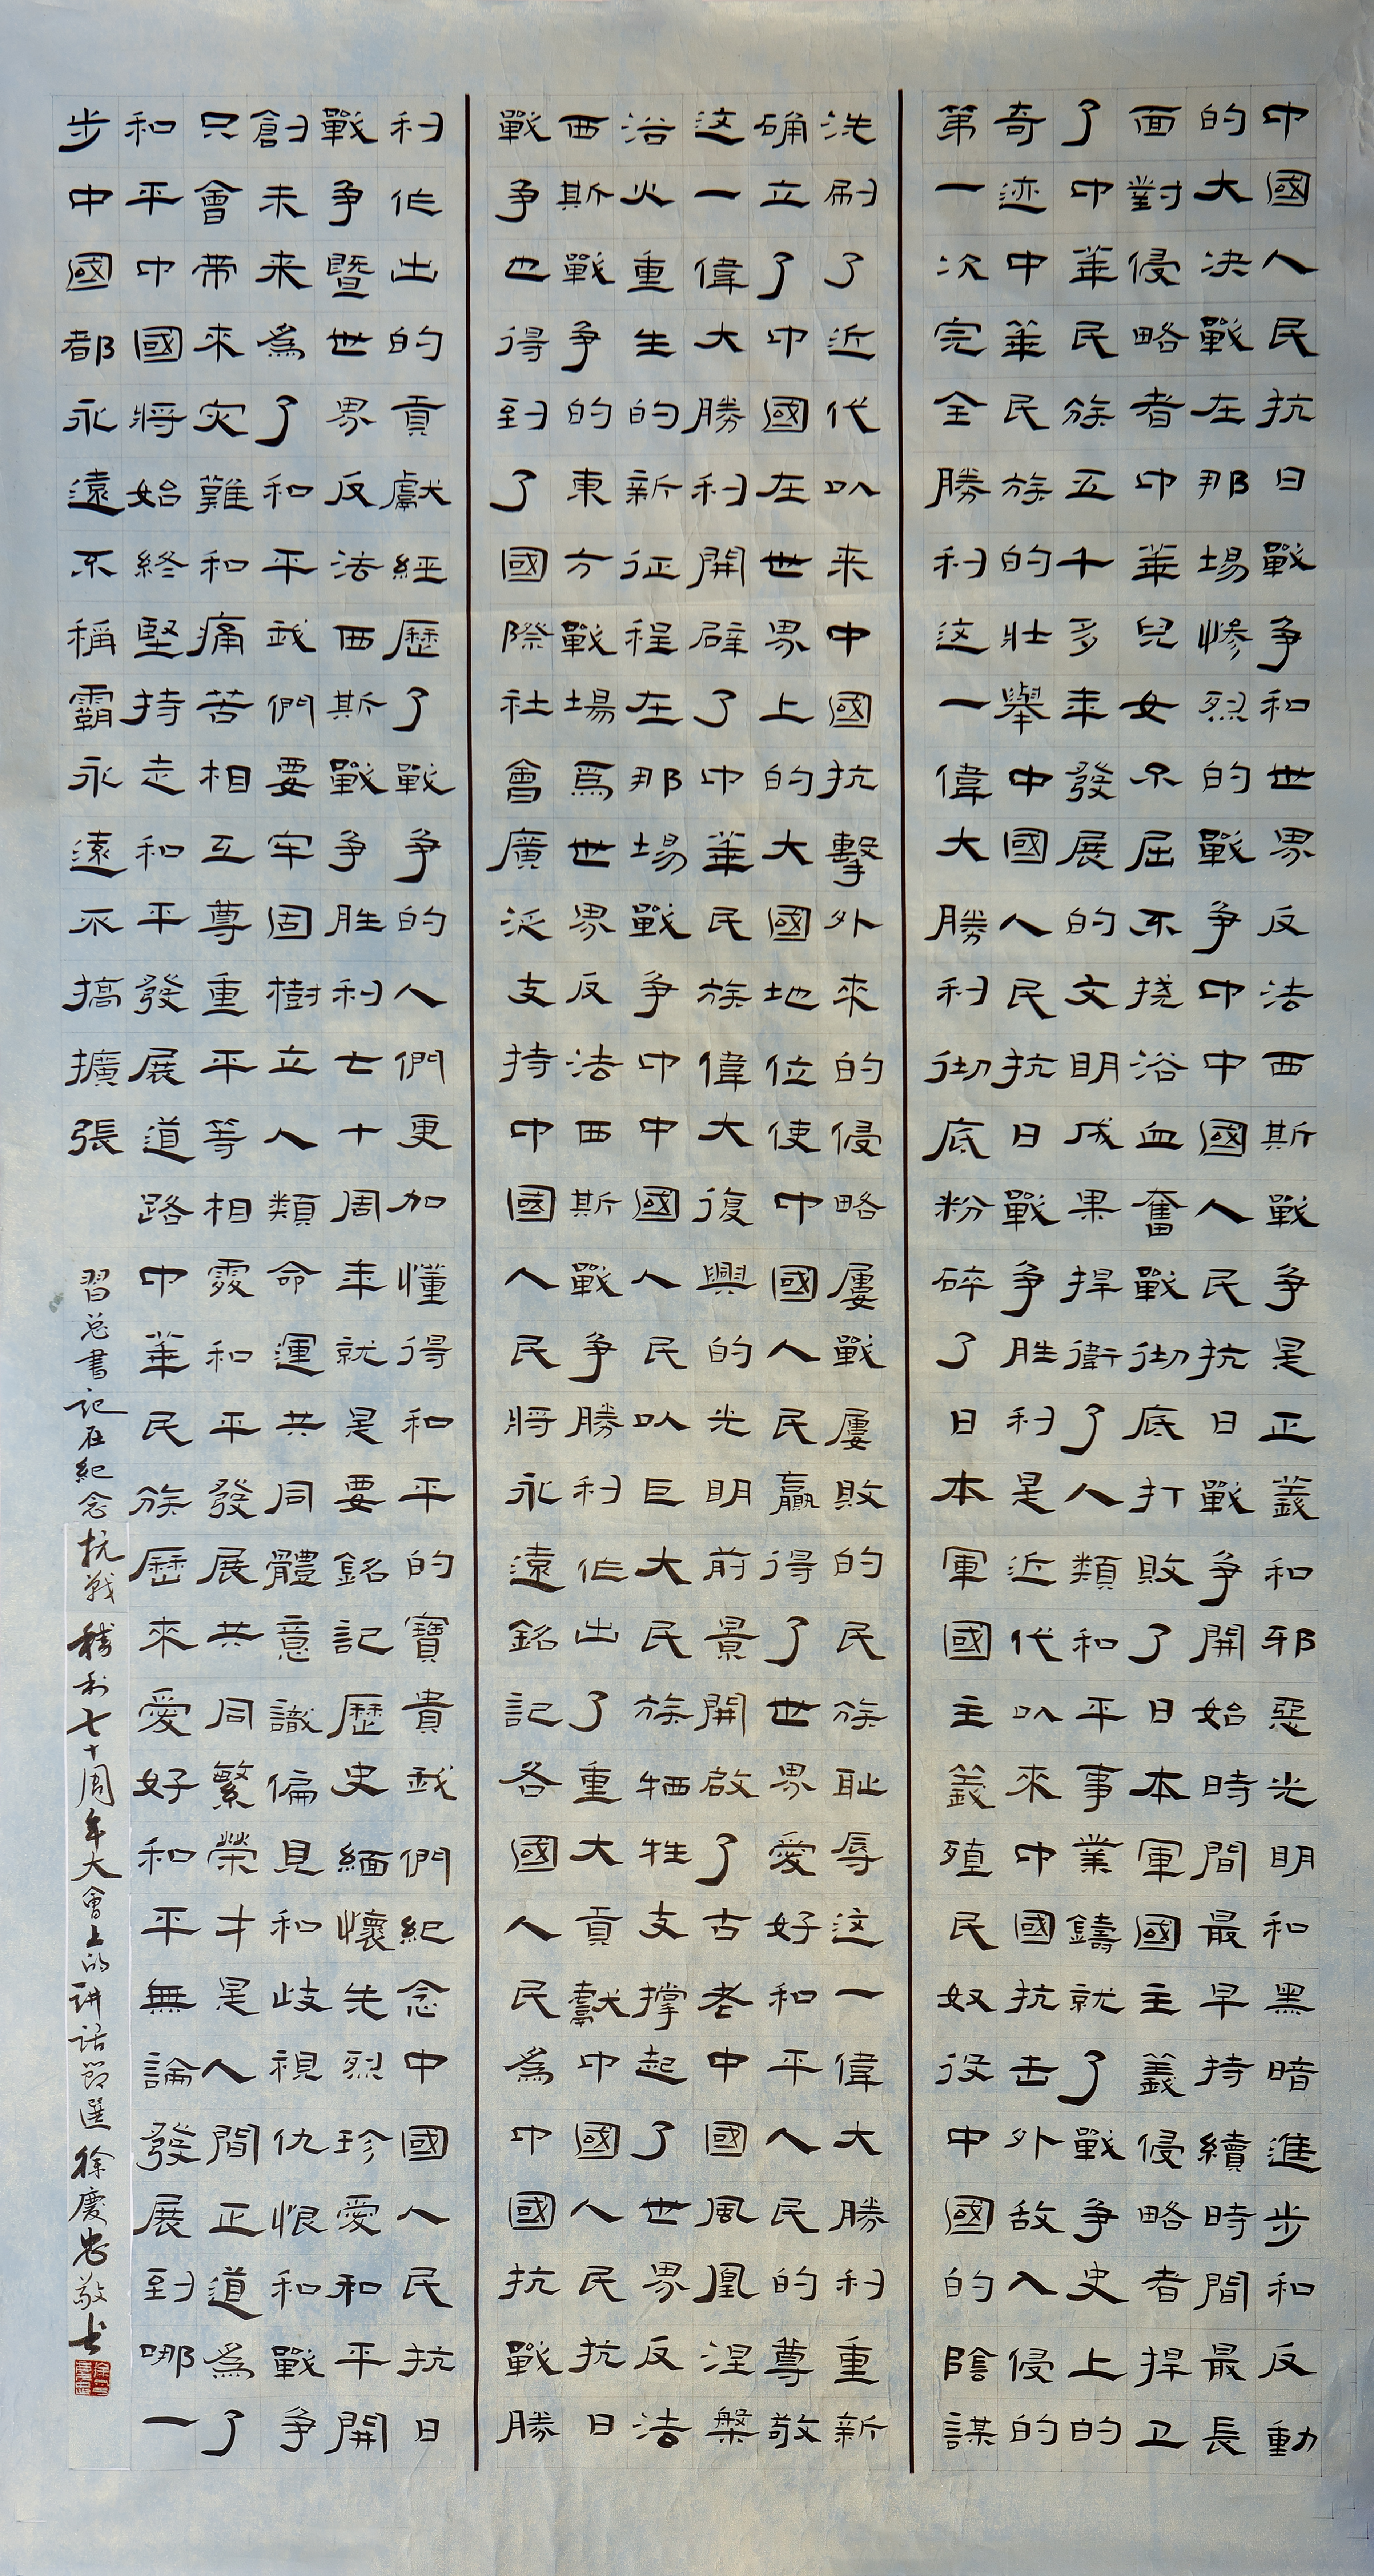 中國人民抗日戰争和世界反法西斯戰争是正義和邪惡光明和黑暗進步和反動
的大决戰在那場惨烈的戰争中中國人民抗日戰争開始時間最早持續時間最長
面對侵略者中華兒女不屈不挠浴血奮戰彻底打敗了日本軍國主義侵略者捍卫
了中華民族五千多年發展的文明成果捍衛了人類和平事業鑄就了戰争史上的
奇迹中華民族的壯舉中國人民抗日戰争胜利是近代以來中國抗击外敌入侵的
第一次完全勝利这一偉大勝利彻底粉碎了日本軍國主義殖民奴役中國的陰謀
洗刷了近代以来中國抗擊外來的侵略屢戰屢敗的民族耻辱这一偉大勝利重新
确立了中國在世界上的大國地位使中國人民贏得了世界愛好和平人民的尊敬
这一偉大勝利開辟了中華民族偉大復興的光明前景開啟了古老中國風凰涅槃
浴火重生的新征程在那場戰争中中國人民以巨大民族牺牲支撑起了世界反法
西斯戰争的東方戰場爲世界反法西斯戰争勝利作出了重大貢獻中國人民抗日
戰争也得到了國際社會廣泛支持中國人民將永遠銘記各國人民為中國抗戰勝
利作出的貢獻經歷了戰争的人們更加懂得和平的寶貴我們紀念中國人民抗日
戰争暨世界反法西斯戰争胜利七十周年就是要銘記歷史緬懷先烈珍愛和平開
創未来為了和平我們要牢固樹立人類命運共同體意識偏見和歧視仇恨和戰争
只會帶來灾難和痛苦相互尊重平等相處和平發展共同繁榮才是人間正道為了
和平中國將始終堅持走和平發展道路中華民族歷來愛好和平無論發展到哪一
步中國都永遠不稱霸永遠不搞擴張
習总書记在紀念抗战勝利七十周年大會上的讲話節選徐慶忠敬书